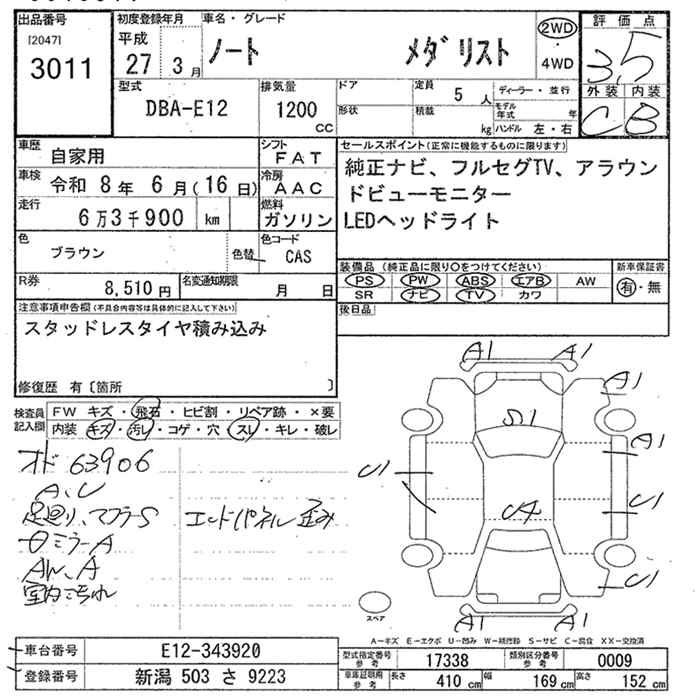 出品番号
[2047]
3011
初度登録年月
平成
27 3月
車名・グレード
ノート メダリスト
2WD
4WD
評価点
3.5
外装 内装
C B
型式
DBA-E12
排気量
1200
CC
ドア
形状
定員
5人
積載
kg
ディーラー・並行
モデル年式 年
ハンドル 左・右
車歴
自家用
シフト
FAT
車検
令和 8年 6月(16日)
冷房
AAC
走行
6万3千900 km
燃料
ガソリン
色
ブラウン
色替
色コード
CAS
R券
8,510円
名変通知期限
月 日
セールスポイント(正常に機能するものに限ります)
純正ナビ、フルセグTV、アラウン
ドビューモニター
LEDヘッドライト
装備品(純正品に限り○をつけてください)
PS PW ABS エアB AW
SR ナビ TV カワ
新車保証書
有・無
後日品
注意事項申告欄(不具合内容等は具体的に記入して下さい)
スタッドレスタイヤ積み込み
修復歴 有〔箇所 〕
検査員
記入欄
FW キズ・飛石・ヒビ割・リペア跡・×要
内装 キズ・汚れ・コゲ・穴・スレ・キレ・破レ
オド 63906
A、U
足廻り、マフラーS
エンドパネル歪み
ミラーA
AW、A
室内汚れ
A1 A1
A1
S1
A1
U1
U1
U1
A1 A1
スペア
A-キズ E-エクボ U-凹み W-補修跡 S-サビ C-腐食 XX-交換済
車台番号 E12-343920
登録番号 新潟 503 さ 9223
型式指定番号 参考 17338
類別区分番号 参考 0009
車庫証明用 参考 長さ 410 cm 幅 169 cm 高さ 152 cm